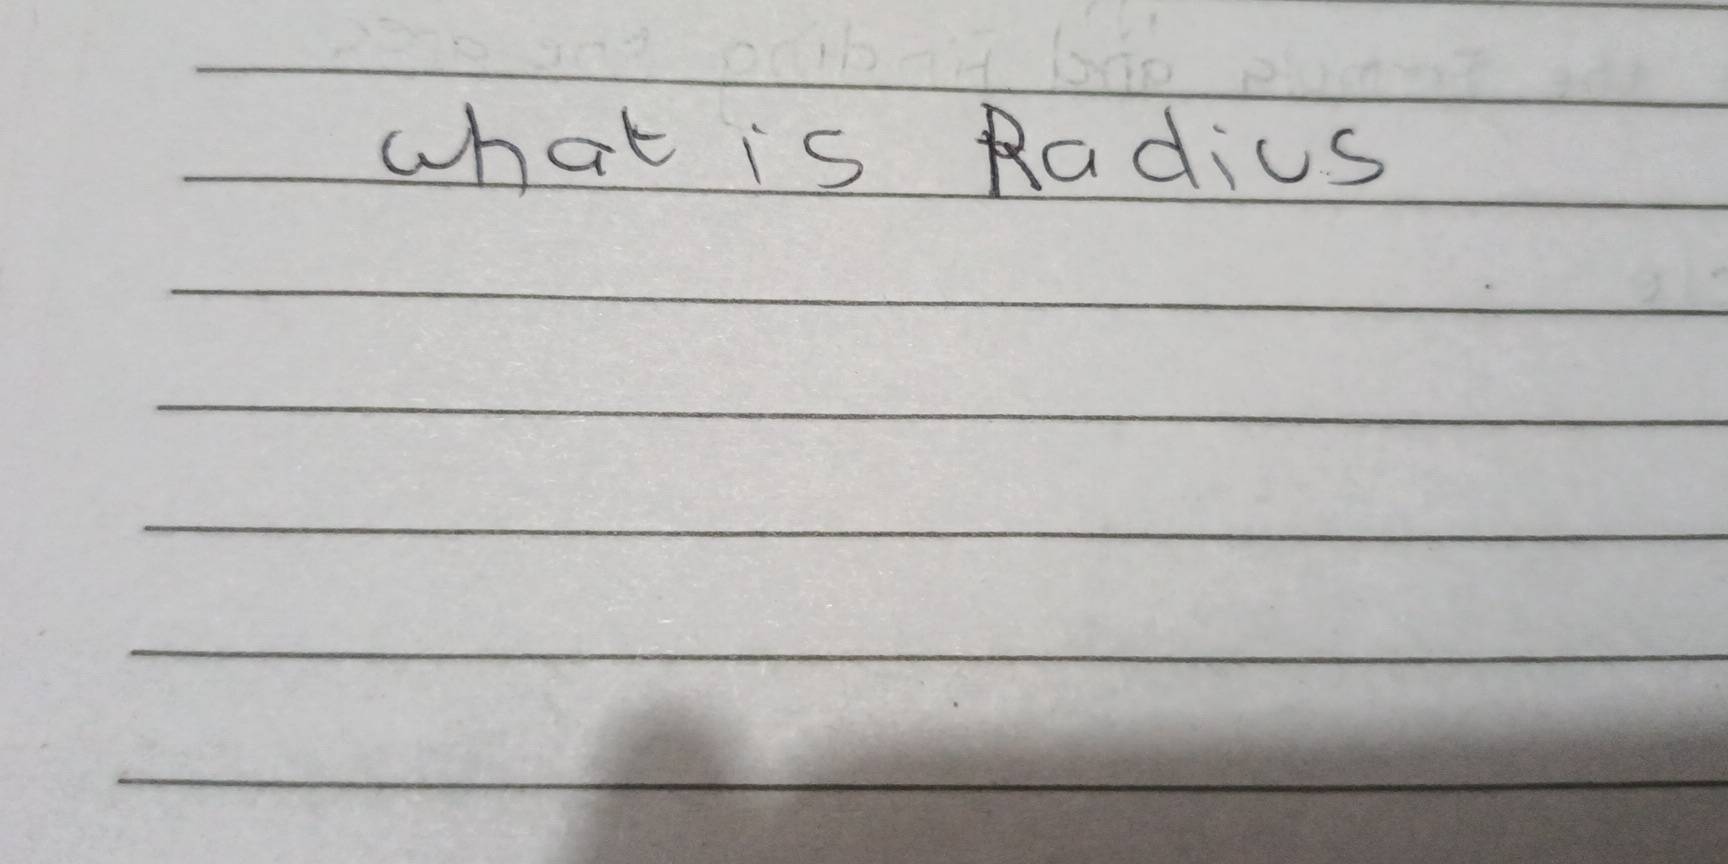 what is Radius